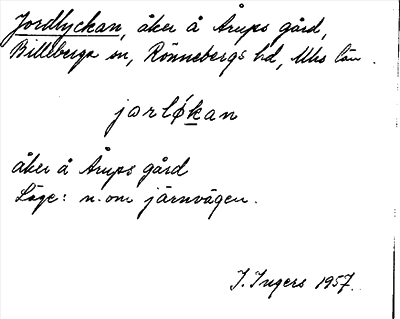 Jordlyckan, åker å Årups gård,
Billeberga sn, Rönnebergs hd, Mhs län.
jorløkan
åker å Årups gård
Läge: n. om järnvägen.
I. Ingers 1957.